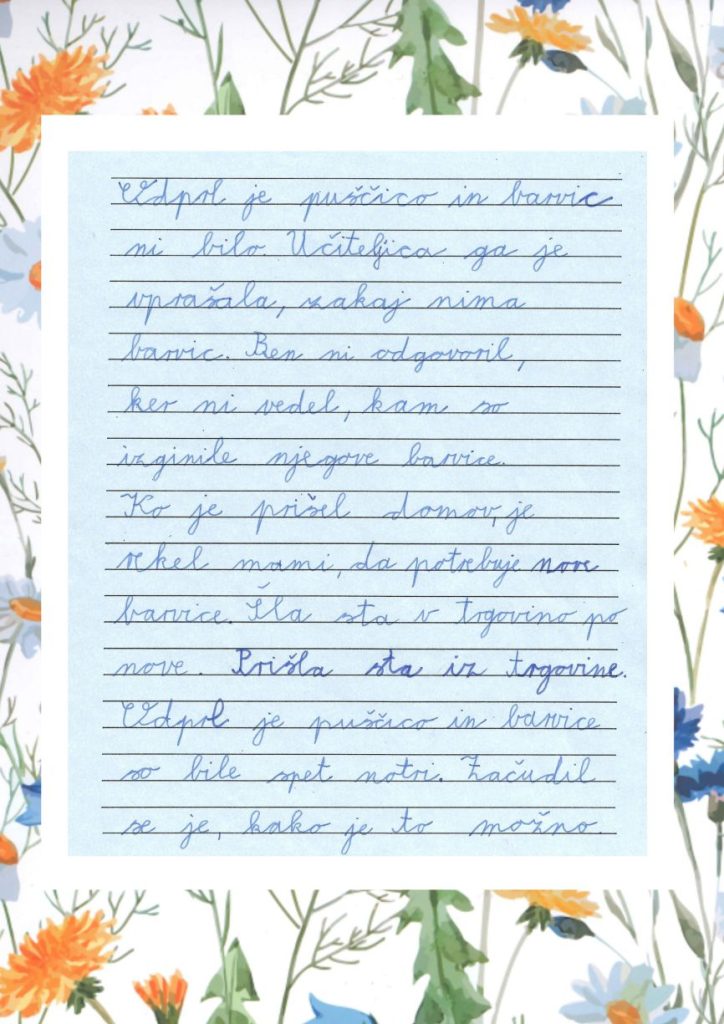 Odprl je puščico in barvic
ni bilo. Učiteljica ga je
vprašala, zakaj nima
barvic. Ben ni odgovoril,
ker ni vedel, kam so
izginile njegove barvice.
Ko je prišel domov, je
rekel mami, da potrebuje nove
barvice. Šla sta v trgovino po
nove. Prišla sta iz trgovine.
Odprl je puščico in barvice
so bile spet notri. Začudil
se je, kako je to možno.